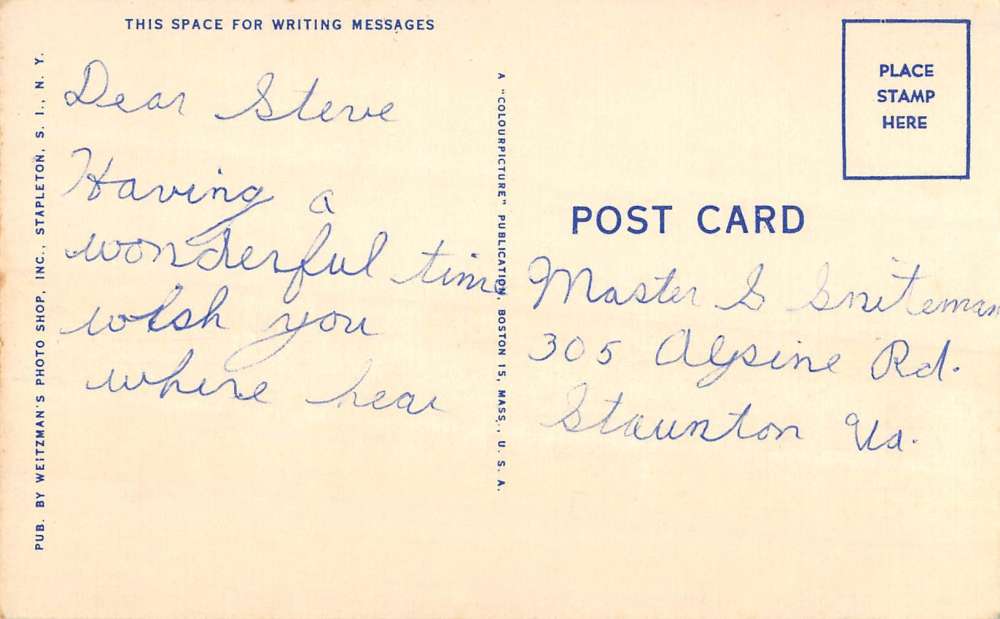 THIS SPACE FOR WRITING MESSAGES
Dear Steve
Having a
wonderful time
wish you
where hear
PUB. BY WEITZMAN'S PHOTO SHOP, INC., STAPLETON, S. I., N. Y.
A "COLOURPICTURE" PUBLICATION, BOSTON 15, MASS., U. S. A.
PLACE
STAMP
HERE
POST CARD
Master S Sniteman
305 Alpine Rd.
Staunton Va.